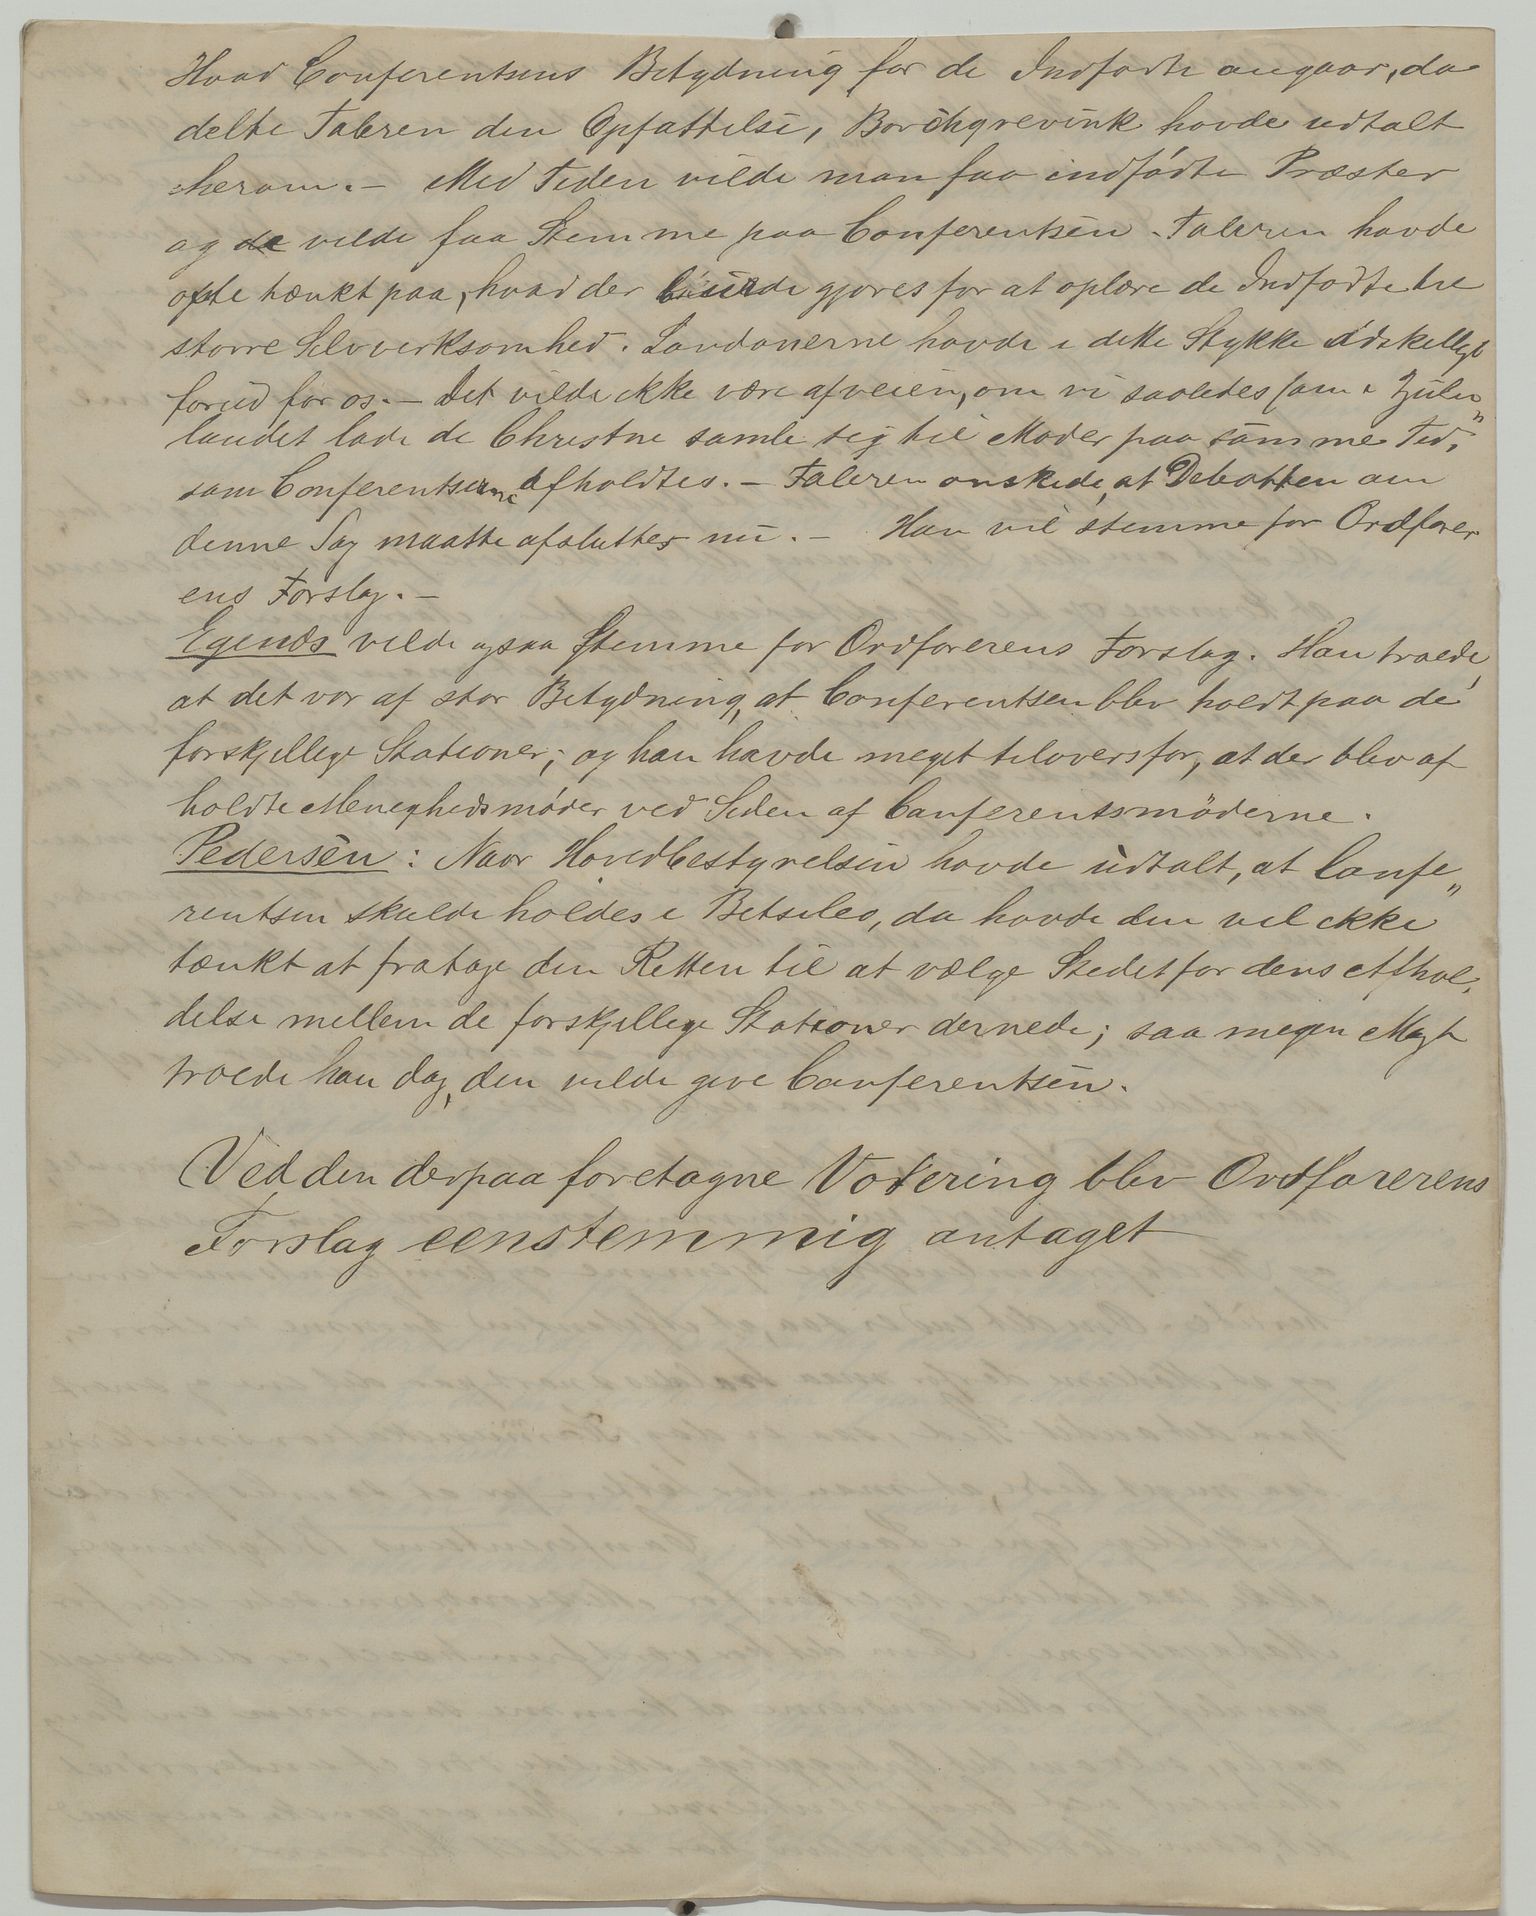 Hvad Conferentsens Betydning for de Indfødte angaar, da
delte Taleren den Opfattelse, Borchgrevink havde udtalt
herom. – Med Tiden vilde man faa indfødte Præster
og de vilde faa Stemme paa Conferentsen. Taleren havde
ofte tænkt paa, hvad der burde gjøres for at oplære de Indfødte til
større Selvvirksomhed. Londonerne havde i dette Stykke adskilligt
forud for os. – Det vilde ikke være afveien, om vi saaledes som i Zulu„
landet lade de Christne samle sig til Møder paa samme Tid,
som Conferentserne afholdtes. – Taleren ønskede, at Debatten om
denne Sag maatte afsluttes nu. – Han vil stemme for Ordfører
ens Forslag. –
Egenæs vilde ogsaa stemme for Ordførerens Forslag. Han troede,
at det var af stor Betydning, at Conferentsen blev holdt paa de
forskjellige Stationer; og han havde meget tilovers for, at der blev af
holdte Menighedsmøder ved Siden af Conferentsmøderne.
Pedersen: Naar Hovedbestyrelsen havde udtalt, at Confe„
rentsen skulde holdes i Betsileo, da havde den vel ikke
tænkt at fratage den Retten til at vælge Stedet for dens Afhol„
delse mellem de forskjellige Stationer dernede; saa megen Magt
troede han dog, den vilde give Conferentsen.
Ved den derpaa foretagne Votering blev Ordførerens
Forslag eenstemmig antaget